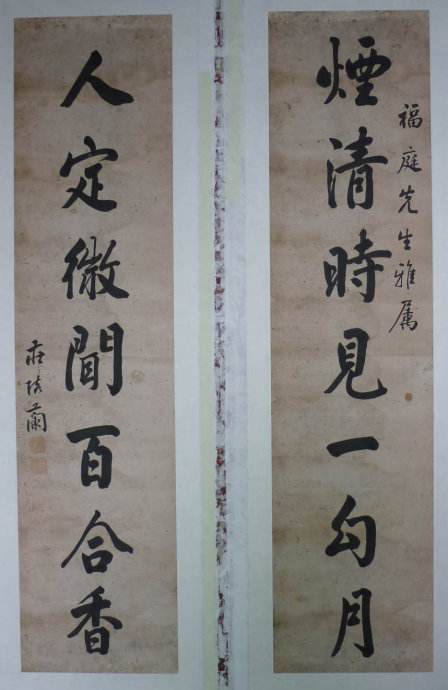 福庭先生雅属
煙清時見一勾月
人定微聞百合香
莊陔蘭